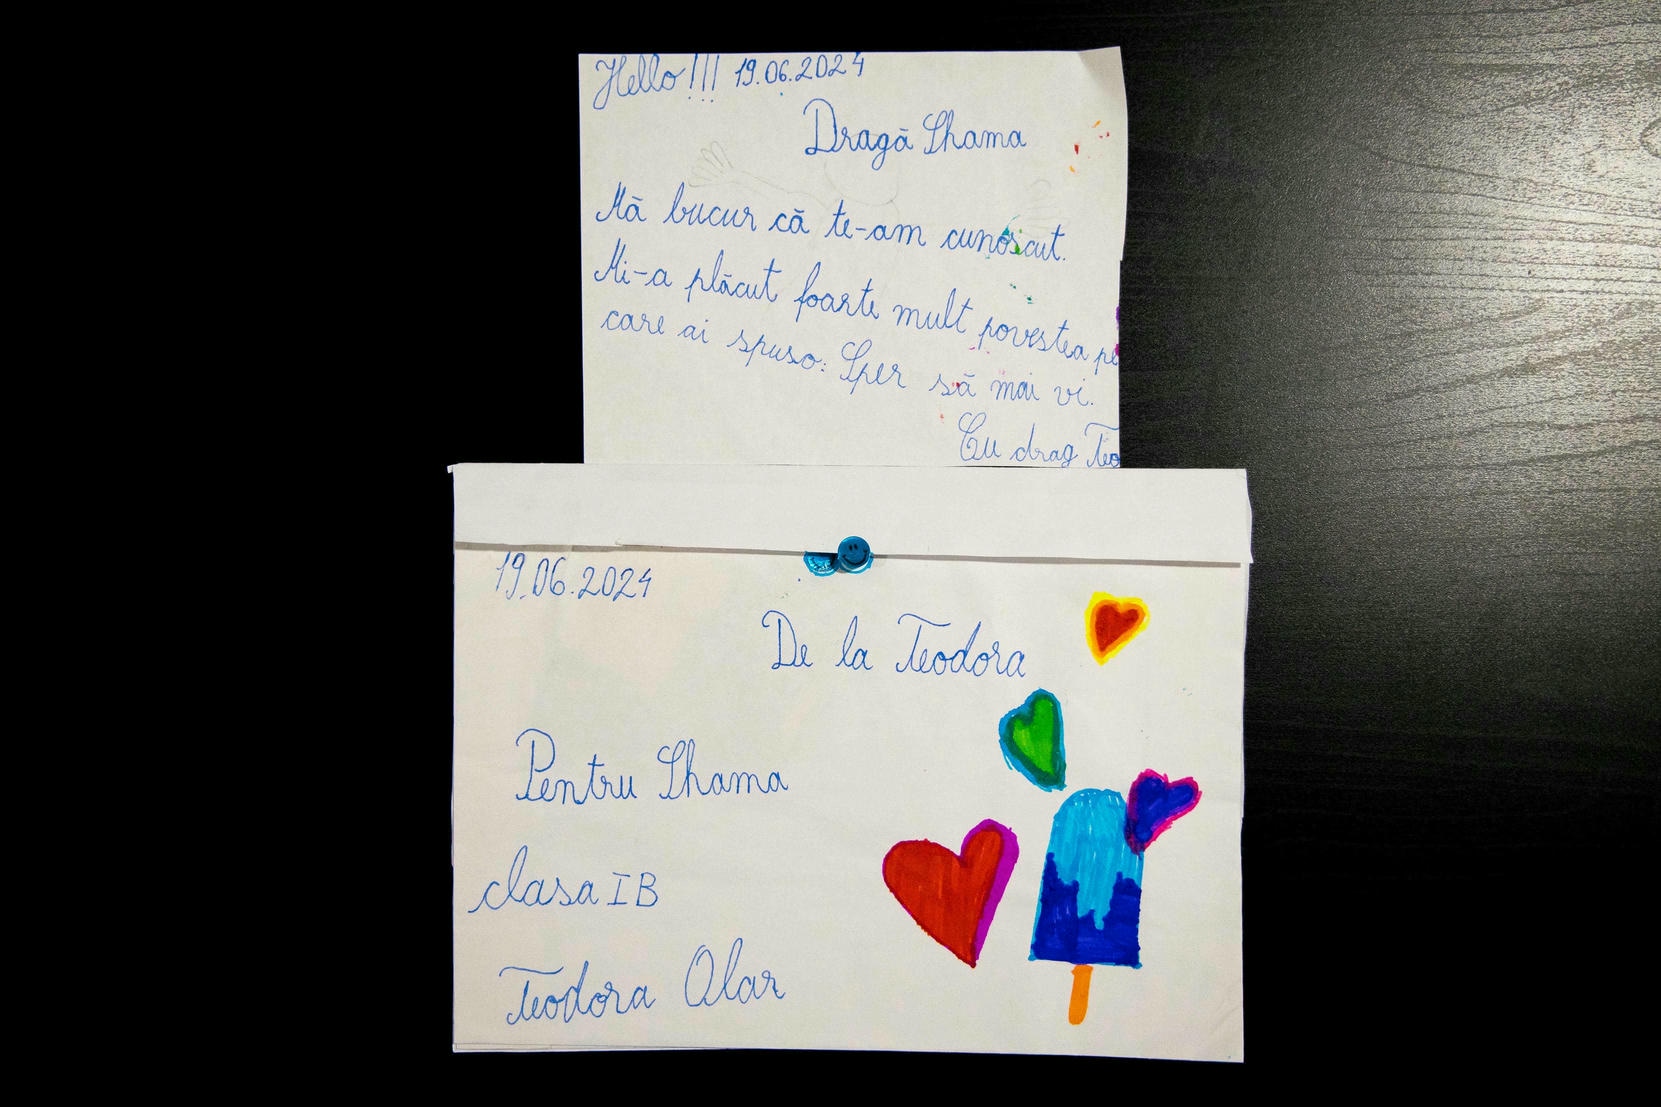 Hello!!! 19.06.2024
Dragă Shama
Mă bucur că te-am cunoscut.
Mi-a plăcut foarte mult povestea pe
care ai spuso: Sper să mai vi.
Cu drag Teo
19.06.2024
De la Teodora
Pentru Shama
clasa I B
Teodora Olar